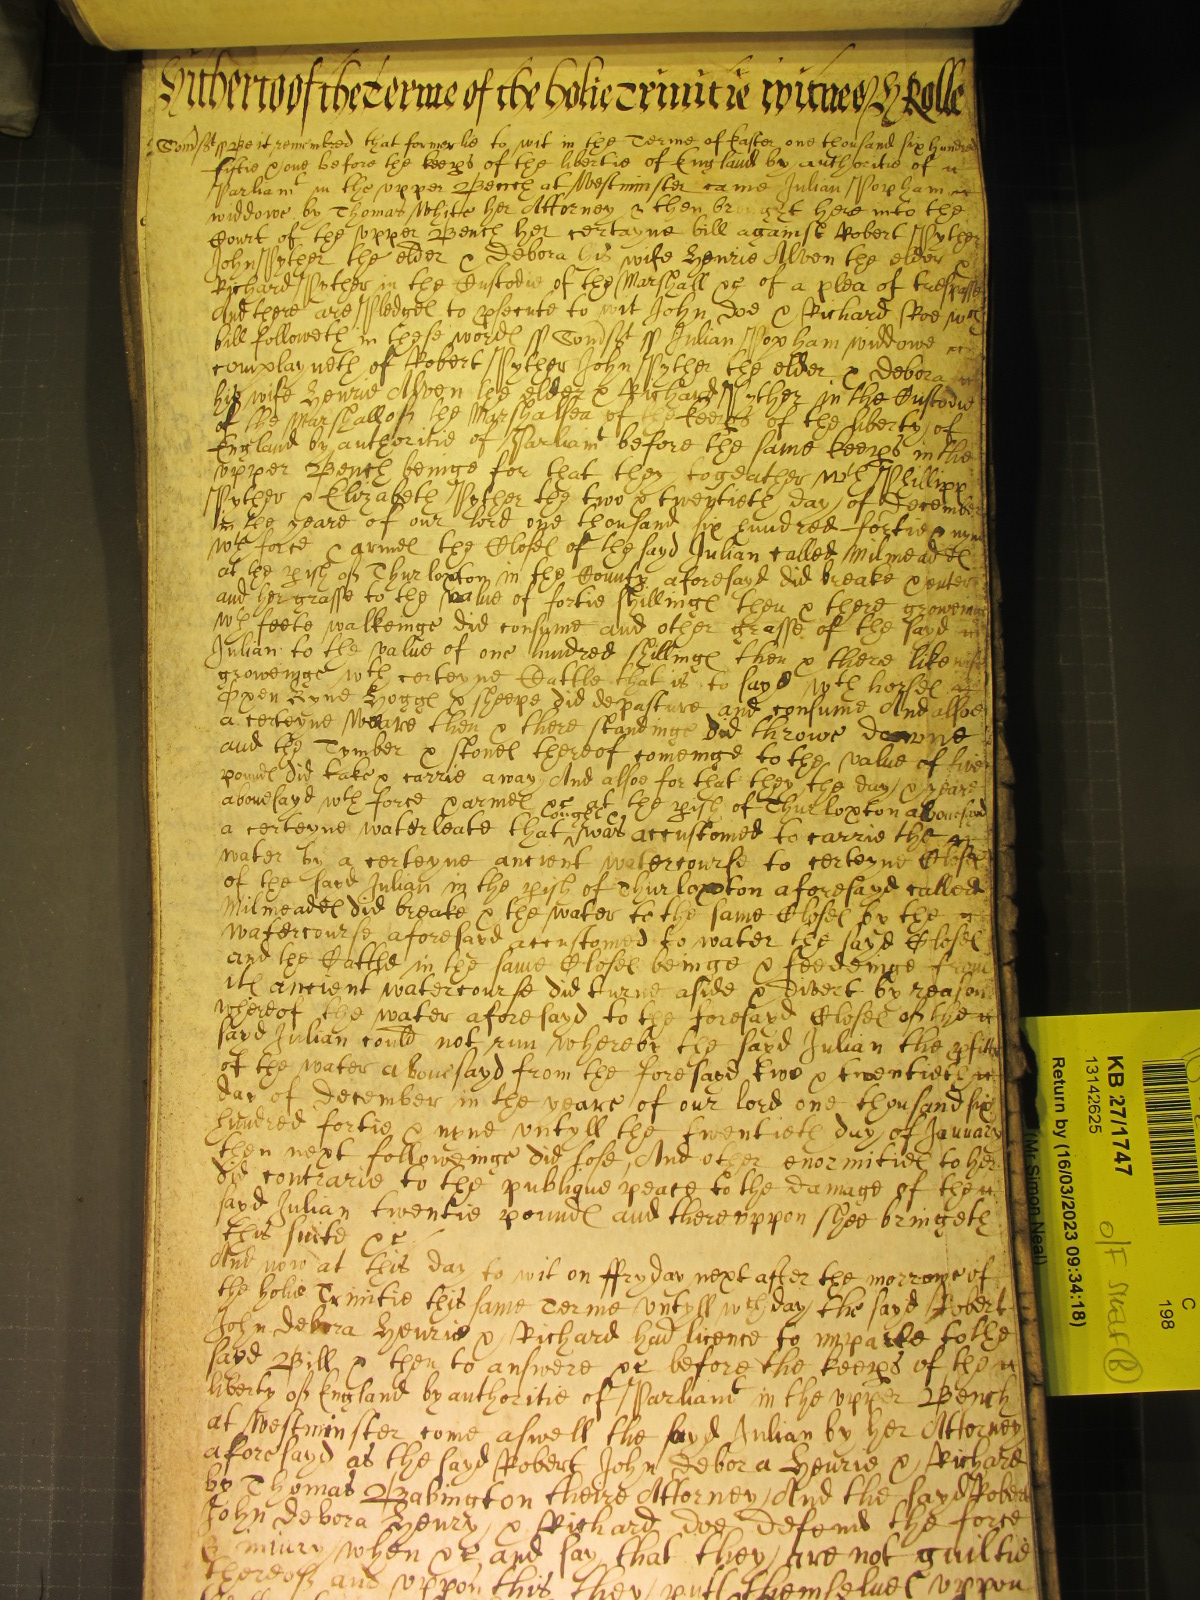 Hitherto of the Terme of the holie Trinitie witnes H Rolle
Somst ss Be it remembred that formerlie to wit in the Terme of Easter one thousand six hundred
fiftie & one before the keeps of the libertie of England by authoritie of
Parliamt in the upper Bench at Westminster came Julian Popham
widdowe by Thomas White her Attorney & then brought here into the
Court of the upper Bench her certayne bill against Robert Pyther
John Pyther the elder & Debora his wife Henrie Alven the elder &
Richard Pyther in the Custodie of the Marshall &c of a plea of trespasse
And there are Pledges to psecute to wit John Doe & Richard Roe wch
bill followeth in these words ss Somst ss Julian Popham widdowe
complayneth of Robert Pyther John Pyther the elder & Debora
his wife Henrie Alven the elder & Richard Pyther in the Custodie
of the Marshall of the Marshalsea of the keeps of the liberty of
England by authoritie of Parliamt before the same keeps in the
upper Bench beinge for that they togeather wth Phillipp
Pyther & Elizabeth Pyther the two & twentieth day of December
in the yeare of our lord one thousand six hundred fortie & nyne
wth force & armes the Closes of the sayd Julian called Milmeades
at the pish of Thurloxton in the County aforesayd did breake & enter
and her grasse to the value of fortie shillings then & there groweinge
wth feete walkeinge did consume and other grasse of the sayd
Julian to the value of one hundred shillings then & there likewise
groweinge wth certeyne Cattle that is to sayd wth horses
Oxen Kyne Hoggs & sheepe did depasture and consume And alsoe
a certeyne Weare then & there standinge did throwe downe
and the Tymber & stones thereof comeinge to the value of five
pounds did take & carrie away And alsoe for that they the day & yeare
abovesayd wth force & armes &c at the pish of Thurloxton abovesayd
a certeyne waterleate that ought was accustomed to carrie the
water by a certeyne ancient watercourse to certeyne Closes
of the sayd Julian in the pish of Thurloxton aforesayd called
Milmeades did breake & the water to the same Closes by the
watercourse aforesayd accustomed to water the sayd Closes
and the Cattle in the same Closes beinge & feedeinge from
its ancient watercourse did turne aside & divert by reason
whereof the water aforesayd to the foresayd Closes of the
sayd Julian could not run whereby the sayd Julian the pfitts
of the water abovesayd from the foresayd two & twentieth
day of December in the yeare of our lord one thousand six
hundred fortie & nyne untyll the twentieth day of January
then next followeinge did lose And other enormities to her
did contrarie to the publique peace to the damage of the
sayd Julian twentie pounds and thereuppon shee bringeth
this suite &c
And now at this day to wit on ffryday next after the morrowe of
the holie Trinitie this same Terme untyll wch day the sayd Robert
John Debora Henrie & Richard had licence to imparle to the
sayd Bill & then to answere &c before the keeps of the
liberty of England by authoritie of Parliamt in the upper Bench
at Westminster come aswell the sayd Julian by her Attorney
aforesayd as the sayd Robert John Debora Henrie & Richard
by Thomas Babington theire Attorney And the sayd Robert
John Debora Henry & Richard doe defend the force
& iniury when &c and say that they are not guiltie
thereof and uppon this they putt themselues uppon
KB 27/1747
13142625
Return by (16/03/2023 09:34:18)
(Mr Simon Neal)
C
198